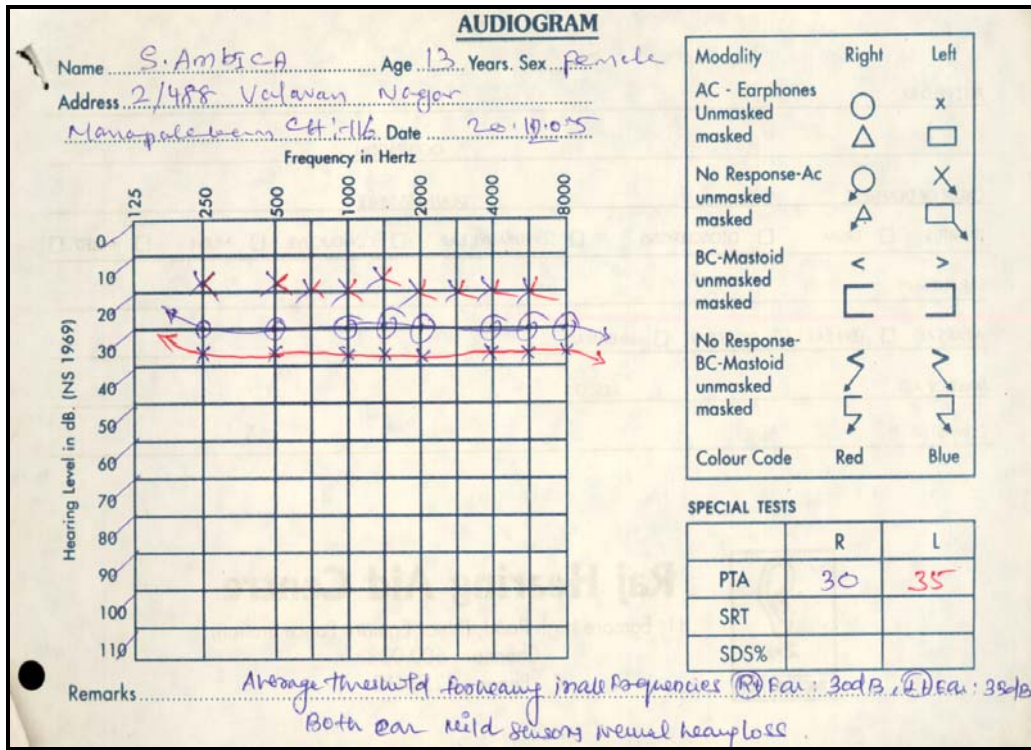 AUDIOGRAM
Name S. AMBICA Age 13 Years. Sex Female
Address 2/488 Valavan Nagar
CH:116 Date
Frequency in Hertz
125 250 500 1000 2000 4000 8000
Hearing Level in dB. (NS 1969)
0
10
20
30
40
50
60
70
80
90
100
110
Modality Right Left
AC - Earphones
Unmasked x
masked
No Response-Ac
unmasked
masked
BC-Mastoid < >
unmasked
masked
No Response-
BC-Mastoid
unmasked
masked
Colour Code Red Blue
SPECIAL TESTS
R L
PTA 30 35
SRT
SDS%
Raj Hearing Aid Centre
Remarks Average threshold frequencies (R) Ear: 30dB, (L) Ear: 35dB
Both ear mild loss.